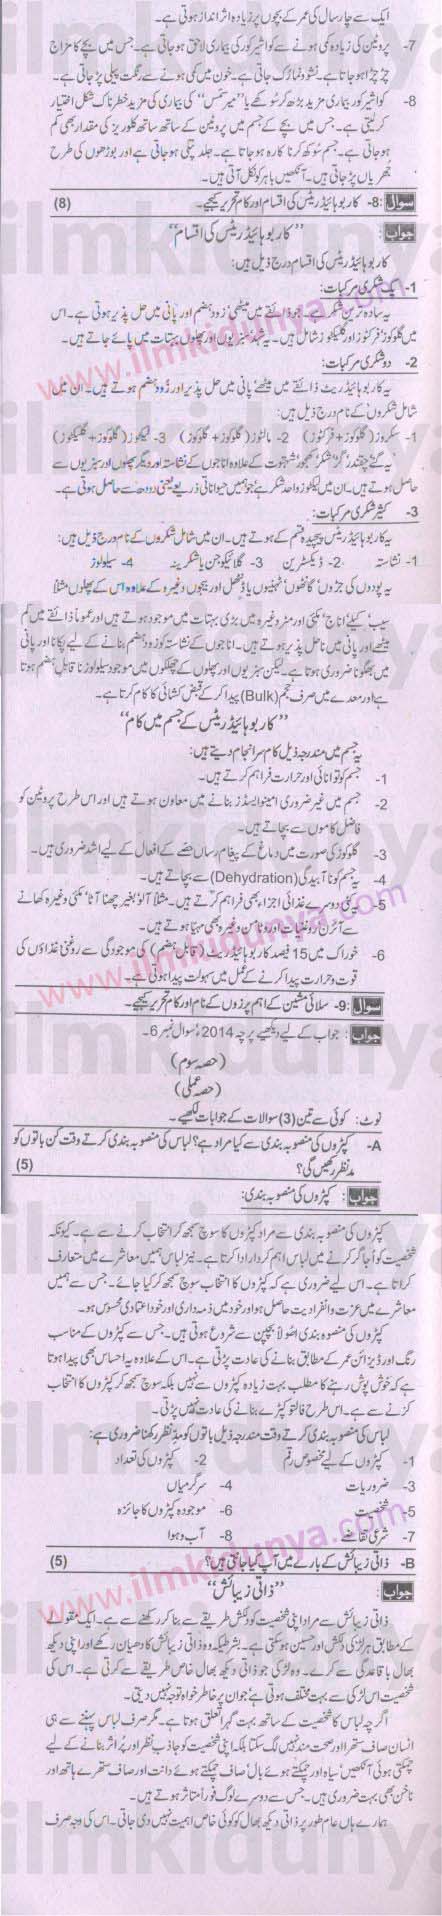 ایک سے چار سال کی عمر کے بچوں پر زیادہ اثر انداز ہوتی ہے۔
7- پروٹین کی زیادہ کمی ہونے سے کواشیرکور کی بیماری لاحق ہو جاتی ہے۔ جس میں بچے کا مزاج
چڑچڑا ہو جاتا ہے۔ نشوونما رک جاتی ہے۔ خون میں کمی ہونے سے رنگت پیلی پڑ جاتی ہے۔
8- کواشیرکور بیماری مزید بڑھ کر سوکھے یا ”میرسمس“ کی بیماری کی مزید خطرناک شکل اختیار
کر لیتی ہے۔ جس میں بچے کے جسم میں پروٹین کے ساتھ ساتھ کلوریز کی مقدار بھی کم
ہو جاتی ہے۔ جسم سوکھ کر ناکارہ ہو جاتا ہے۔ جلد پتلی ہو جاتی ہے اور بوڑھوں کی طرح
جھریاں پڑ جاتی ہیں۔ آنکھیں باہر کو نکل آتی ہیں۔
سوال 8- کاربوہائیڈریٹس کی اقسام اور کام تحریر کیجیے۔ (8)
جواب: ”کاربوہائیڈریٹس کی اقسام“
کاربوہائیڈریٹس کی اقسام درج ذیل ہیں:
1- شکری مرکبات:
یہ سادہ ترین شکر ہے۔ جو ذائقے میں میٹھی، زود ہضم اور پانی میں حل پذیر ہوتی ہے۔ اس
میں گلوکوز، فرکٹوز اور گلیکوز شامل ہیں۔ یہ شہد، سبزیوں اور پھلوں میں بہتات میں پائے جاتے ہیں۔
2- دو شکری مرکبات:
یہ کاربوہائیڈریٹ ذائقے میں میٹھے، پانی میں حل پذیر اور زود ہضم ہوتے ہیں۔ ان میں
شامل شکروں کے نام درج ذیل ہیں:
1- سکروز (گلوکوز + فرکٹوز) 2- مالٹوز (گلوکوز + گلوکوز) 3- لیکٹوز (گلوکوز + گلیکٹوز)
یہ گنے، چقندر، گڑ، شکر، کھجور، شہتوت کے علاوہ اناجوں کے نشاستہ اور دیگر پھلوں اور سبزیوں سے
حاصل ہوتے ہیں۔ ان میں لیکٹوز واحد شکر ہے جو ہمیں حیوانی ذریعے یعنی دودھ سے حاصل ہوتی ہے۔
3- کثیر شکری مرکبات:
یہ کاربوہائیڈریٹس پیچیدہ قسم کے ہوتے ہیں۔ ان میں شامل شکروں کے نام درج ذیل ہیں:
1- نشاستہ 2- ڈیکسٹرین 3- گلائیکوجن یا شکرینہ 4- سیلولوز
یہ پودوں کی جڑوں، گانٹھوں، ٹہنیوں یا ڈنٹھل اور بیجوں وغیرہ کے علاوہ اس کے پھلوں مثلاً
سیب، کیلے، اناج، مکئی اور مٹر وغیرہ میں بڑی بہتات میں موجود ہوتے ہیں اور عموماً ذائقے میں کم
میٹھے اور پانی میں ناحل پذیر ہوتے ہیں۔ اناجوں کے نشاستہ کو زود ہضم بنانے کے لیے پکانا اور پانی
میں بھگونا ضروری ہوتا ہے۔ لیکن سبزیوں اور پھلوں کے چھلکوں میں موجود سیلولوز ناقابل ہضم ہوتا
ہے اور معدے میں صرف حجم (Bulk) پیدا کر کے قبض کشائی کا کام کرتا ہے۔
”کاربوہائیڈریٹس کے جسم میں کام“
یہ جسم میں مندرجہ ذیل کام سرانجام دیتے ہیں:
1- جسم کو توانائی اور حرارت فراہم کرتے ہیں۔
2- جسم میں غیر ضروری امینو ایسڈز بنانے میں معاون ہوتے ہیں اور اس طرح پروٹین کو
فاضل کاموں سے بچاتے ہیں۔
3- گلوکوز کی صورت میں دماغ کے پیغام رساں حصے کے افعال کے لیے اشد ضروری ہیں۔
4- جسم کو ناآبیدگی (Dehydration) سے بچاتے ہیں۔
5- یہ کئی دوسرے غذائی اجزاء بھی فراہم کرتے ہیں۔ مثلاً آلو، بغیر چھنا آٹا، مکئی وغیرہ کھانے
سے آئرن، روغنیات اور وٹامن وغیرہ بھی مہیا ہوتے ہیں۔
6- خوراک میں 15 فیصد کاربوہائیڈریٹ (قابل ہضم) کی موجودگی سے روغنی غذاؤں کی
قوت و حرارت پیدا کرنے کے عمل میں سہولت پیدا ہوتی ہے۔
سوال 9- سلائی مشین کے اہم پرزوں کے نام اور کام تحریر کیجیے۔
جواب: جواب کے لیے دیکھیے پرچہ 2014ء سوال نمبر 6۔
(حصہ سوم)
(حصہ عملی)
نوٹ: کوئی سے تین (3) سوالات کے جوابات لکھیے۔
A- کپڑوں کی منصوبہ بندی سے کیا مراد ہے؟ لباس کی منصوبہ بندی کرتے وقت کن باتوں کو
مدنظر رکھیں گی؟ (5)
جواب: کپڑوں کی منصوبہ بندی:
کپڑوں کی منصوبہ بندی سے مراد کپڑوں کا سوچ سمجھ کر انتخاب کرنے سے ہے۔ کیونکہ
شخصیت کو اجاگر کرنے میں لباس اہم کردار ادا کرتا ہے۔ نیز لباس ہمیں معاشرے میں متعارف
کراتا ہے۔ اس لیے ضروری ہے کہ کپڑوں کا انتخاب سوچ سمجھ کر کیا جائے۔ جس سے ہمیں
معاشرے میں عزت و انفرادیت حاصل ہو اور خود میں ذمہ داری اور خود اعتمادی محسوس ہو۔
کپڑوں کی منصوبہ بندی اصولاً بچپن سے شروع ہوتی ہیں۔ جس سے کپڑوں کے مناسب
رنگ اور ڈیزائن عمر کے مطابق بنانے کی عادت پڑتی ہے۔ اس کے علاوہ یہ احساس بھی پیدا ہوتا
ہے کہ خوش پوش رہنے کا مطلب بہت زیادہ کپڑوں سے نہیں بلکہ سوچ سمجھ کر کپڑوں کا انتخاب
کرنے سے ہے۔ اس طرح فالتو کپڑے بنانے کی عادت نہیں پڑتی۔
لباس کی منصوبہ بندی کرتے وقت مندرجہ ذیل باتوں کو مدنظر رکھنا ضروری ہے:
1- کپڑوں کے لیے مخصوص رقم 2- کپڑوں کی تعداد
3- ضروریات 4- سرگرمیاں
5- شخصیت 6- موجودہ کپڑوں کا جائزہ
7- شرعی تقاضے 8- آب و ہوا
B- ذاتی زیبائش کے بارے میں آپ کیا جانتی ہیں؟ (5)
جواب: ”ذاتی زیبائش“
ذاتی زیبائش سے مراد اپنی شخصیت کو دلکش طریقے سے بنا کر رکھنے سے ہے۔ ایک مقولے
کے مطابق ہر لڑکی دلکش اور حسین ہو سکتی ہے۔ بشرطیکہ وہ ذاتی زیبائش کا دھیان رکھے اور اپنی دیکھ
بھال باقاعدگی سے کرے۔ وہ لڑکی جو ذاتی دیکھ بھال خاص طریقے سے کرتی ہے۔ اس کی
شخصیت اس لڑکی سے بہت مختلف ہوتی ہے، جو ان پر خاطر خواہ توجہ نہیں دیتی۔
اگرچہ لباس کا شخصیت کے ساتھ بہت گہرا تعلق ہوتا ہے۔ مگر صرف لباس پہننے سے ہی
انسان صاف ستھرا اور صحت مند نہیں لگ سکتا بلکہ اپنی شخصیت کو جاذب نظر اور پُر اثر بنانے کے لیے
چمکتی ہوئی آنکھیں، سیاہ اور چمکتے ہوئے بال، صاف چمکتے ہوئے دانت اور صاف ستھرے ہاتھ اور
ناخن بھی بہت ضروری ہیں۔ جس سے دوسرے لوگ فوراً متاثر ہوتے ہیں۔
ہمارے ہاں عام طور پر ذاتی دیکھ بھال کو کوئی خاص اہمیت نہیں دی جاتی۔ اس کی وجہ صرف
www.ilmkidunya.com
ilmkidunya